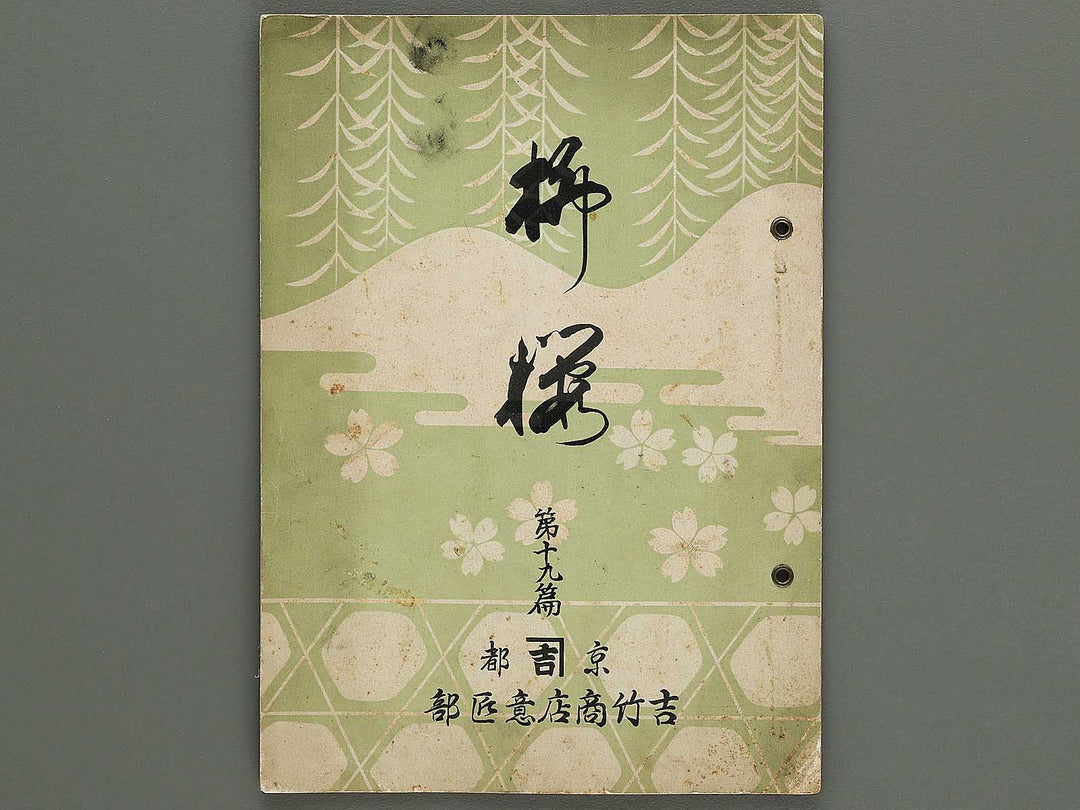 柳桜
第十九篇
京吉都
吉竹商店意匠部